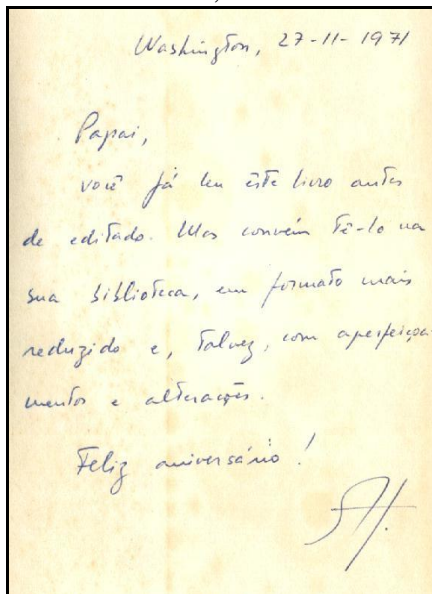 Washington, 27-11-1971
Papai,
você já leu êste livro antes
de editado. Mas convém tê-lo na
sua biblioteca, em formato mais
reduzido e, talvez, com aperfeiçoa-
mentos e alterações.
Feliz aniversário!